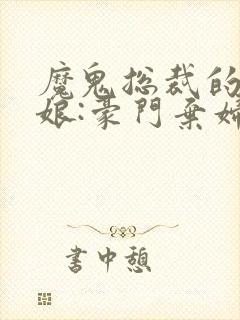 魔鬼总裁的
娘:豪門棄婦
書中憩